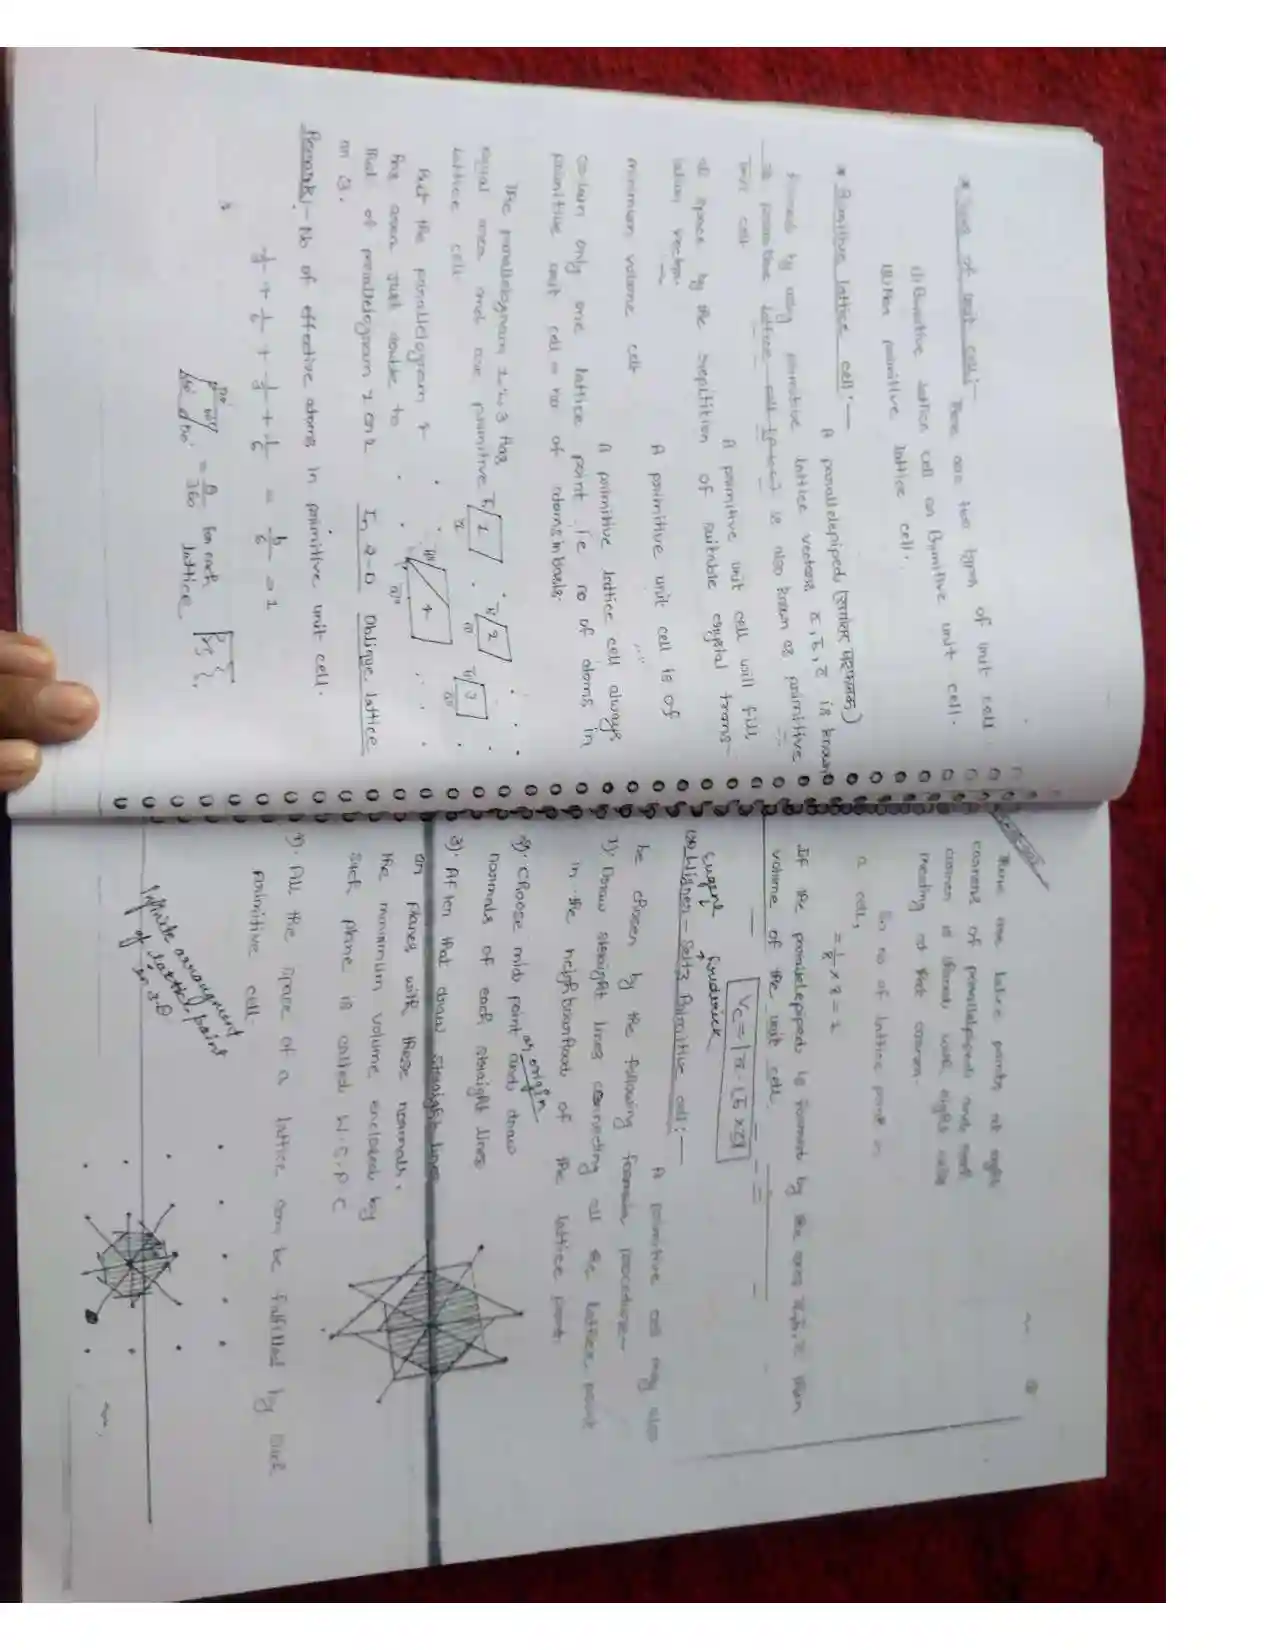 * Type of unit cell :- There are two types of unit cell.
(i) Primitive lattice cell or Primitive unit cell.
(ii) Non primitive lattice cell.
* Primitive lattice cell :-
A parallelepiped ( ) is known
formed by using primitive lattice vectors a, b, c is known
as primitive lattice cell is also known as primitive
unit cell
A primitive unit cell will fill
all space by the repitition of suitable crystal trans-
lation vector.
A primitive unit cell is of
minimum volume cell.
A primitive lattice cell always
contain only one lattice point i.e no of atoms in
primitive unit cell = no of atoms in basis.
The parallelogram 1, 2, 3 has
equal area and are primitive
lattice cell.
But the parallelogram 4
has area just double to
that of parallelogram 1 or 2
or 3.
In 2-D Oblique lattice
Remark :- No of effective atoms in primitive unit cell.
1/3 + 1/6 + 1/3 + 1/6 = 6/6 = 1
= θ/360 for each
lattice
There are lattice points at eight
corners of parallelepiped and each
corner is shared with eight cells
meeting at that corner.
So no of lattice point in
a cell,
= 1/8 × 8 = 1
If the parallelepiped is formed by the axes a, b, c then
volume of the unit cell.
Vc = |a · (b × c)|
Eugene Friedrick
Wigner-Seitz Primitive cell :-
A primitive cell may also
be chosen by the following procedure-
1). Draw straight lines connecting all the lattice point
in the neighbourhood of the lattice point.
2). Choose mid point as origin and draw
normals of each straight lines
3). After that draw straight lines
or planes with these normals.
the minimum volume enclosed by
such plane is called W.S.P.C
4). All the space of a lattice can be fulfilled by such
primitive cell.
Infinite arrangment
of lattice point
in 3-D